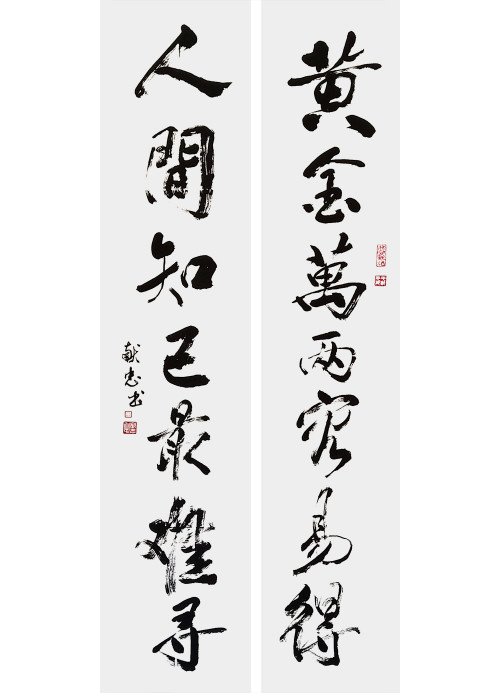 黄金萬两容易得
人間知己最難寻
献忠书